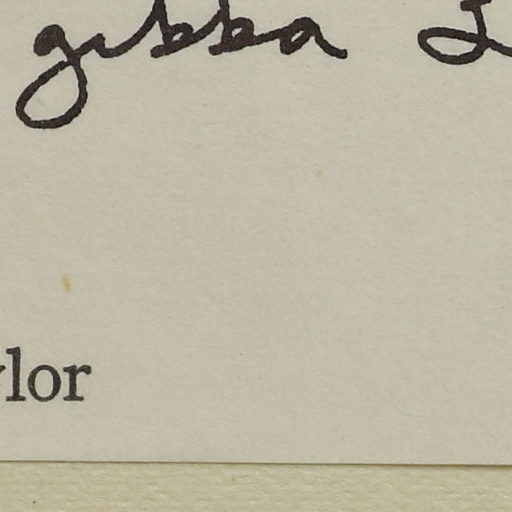 gibba L
ylor